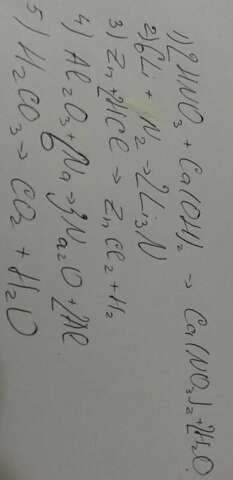 1) 2HNO₃ + Ca(OH)₂ → Ca(NO₃)₂ + 2H₂O
2) 6Li + N₂ → 2Li₃N
3) Zn + 2HCl → ZnCl₂ + H₂
4) Al₂O₃ + 6Na → 3Na₂O + 2Al
5) H₂CO₃ → CO₂ + H₂O